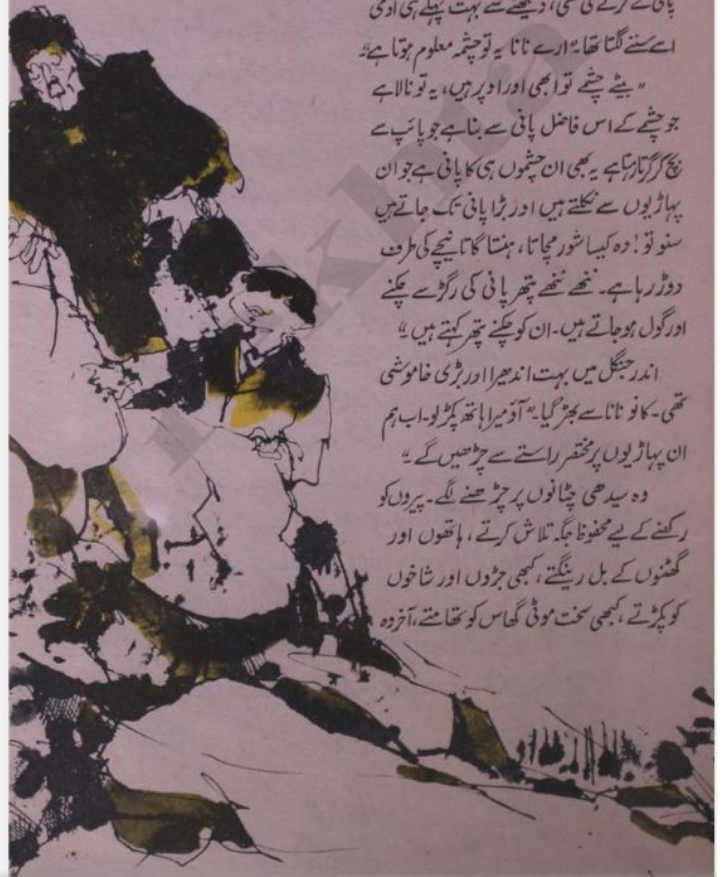 پانی کے گرنے کی تھی، دیکھنے سے بہت پہلے ہی آدمی
اسے سننے لگتا تھا۔ "ارے نانا یہ تو چشمہ معلوم ہوتا ہے"۔
"بیٹے چشمے تو ابھی اور اوپر ہیں، یہ تو نالا ہے
جو چشمے کے اس فاضل پانی سے بنا ہے جو پائپ سے
بچ کر گرتا رہتا ہے یہ بھی ان چشموں ہی کا پانی ہے جو ان
پہاڑیوں سے نکلتے ہیں اور بڑا پانی تک جاتے ہیں
سنو تو! وہ کیسا شور مچاتا، ہنستا گاتا نیچے کی طرف
دوڑ رہا ہے۔ ننھے ننھے پتھر پانی کی رگڑ سے چکنے
اور گول ہو جاتے ہیں۔ ان کو چکنے پتھر کہتے ہیں"
اندر جنگل میں بہت اندھیرا اور بڑی خاموشی
تھی۔ کانو نانا سے بھڑ گیا۔ "آؤ میرا ہاتھ پکڑ لو۔ اب ہم
ان پہاڑیوں پر مختصر راستے سے چڑھیں گے"
وہ سیدھی چٹانوں پر چڑھنے لگے۔ پیروں کو
رکھنے کے لیے محفوظ جگہ تلاش کرتے، ہاتھوں اور
گھٹنوں کے بل رینگتے، کبھی جڑوں اور شاخوں
کو پکڑتے، کبھی سخت موٹی گھاس کو تھامتے، آخر وہ